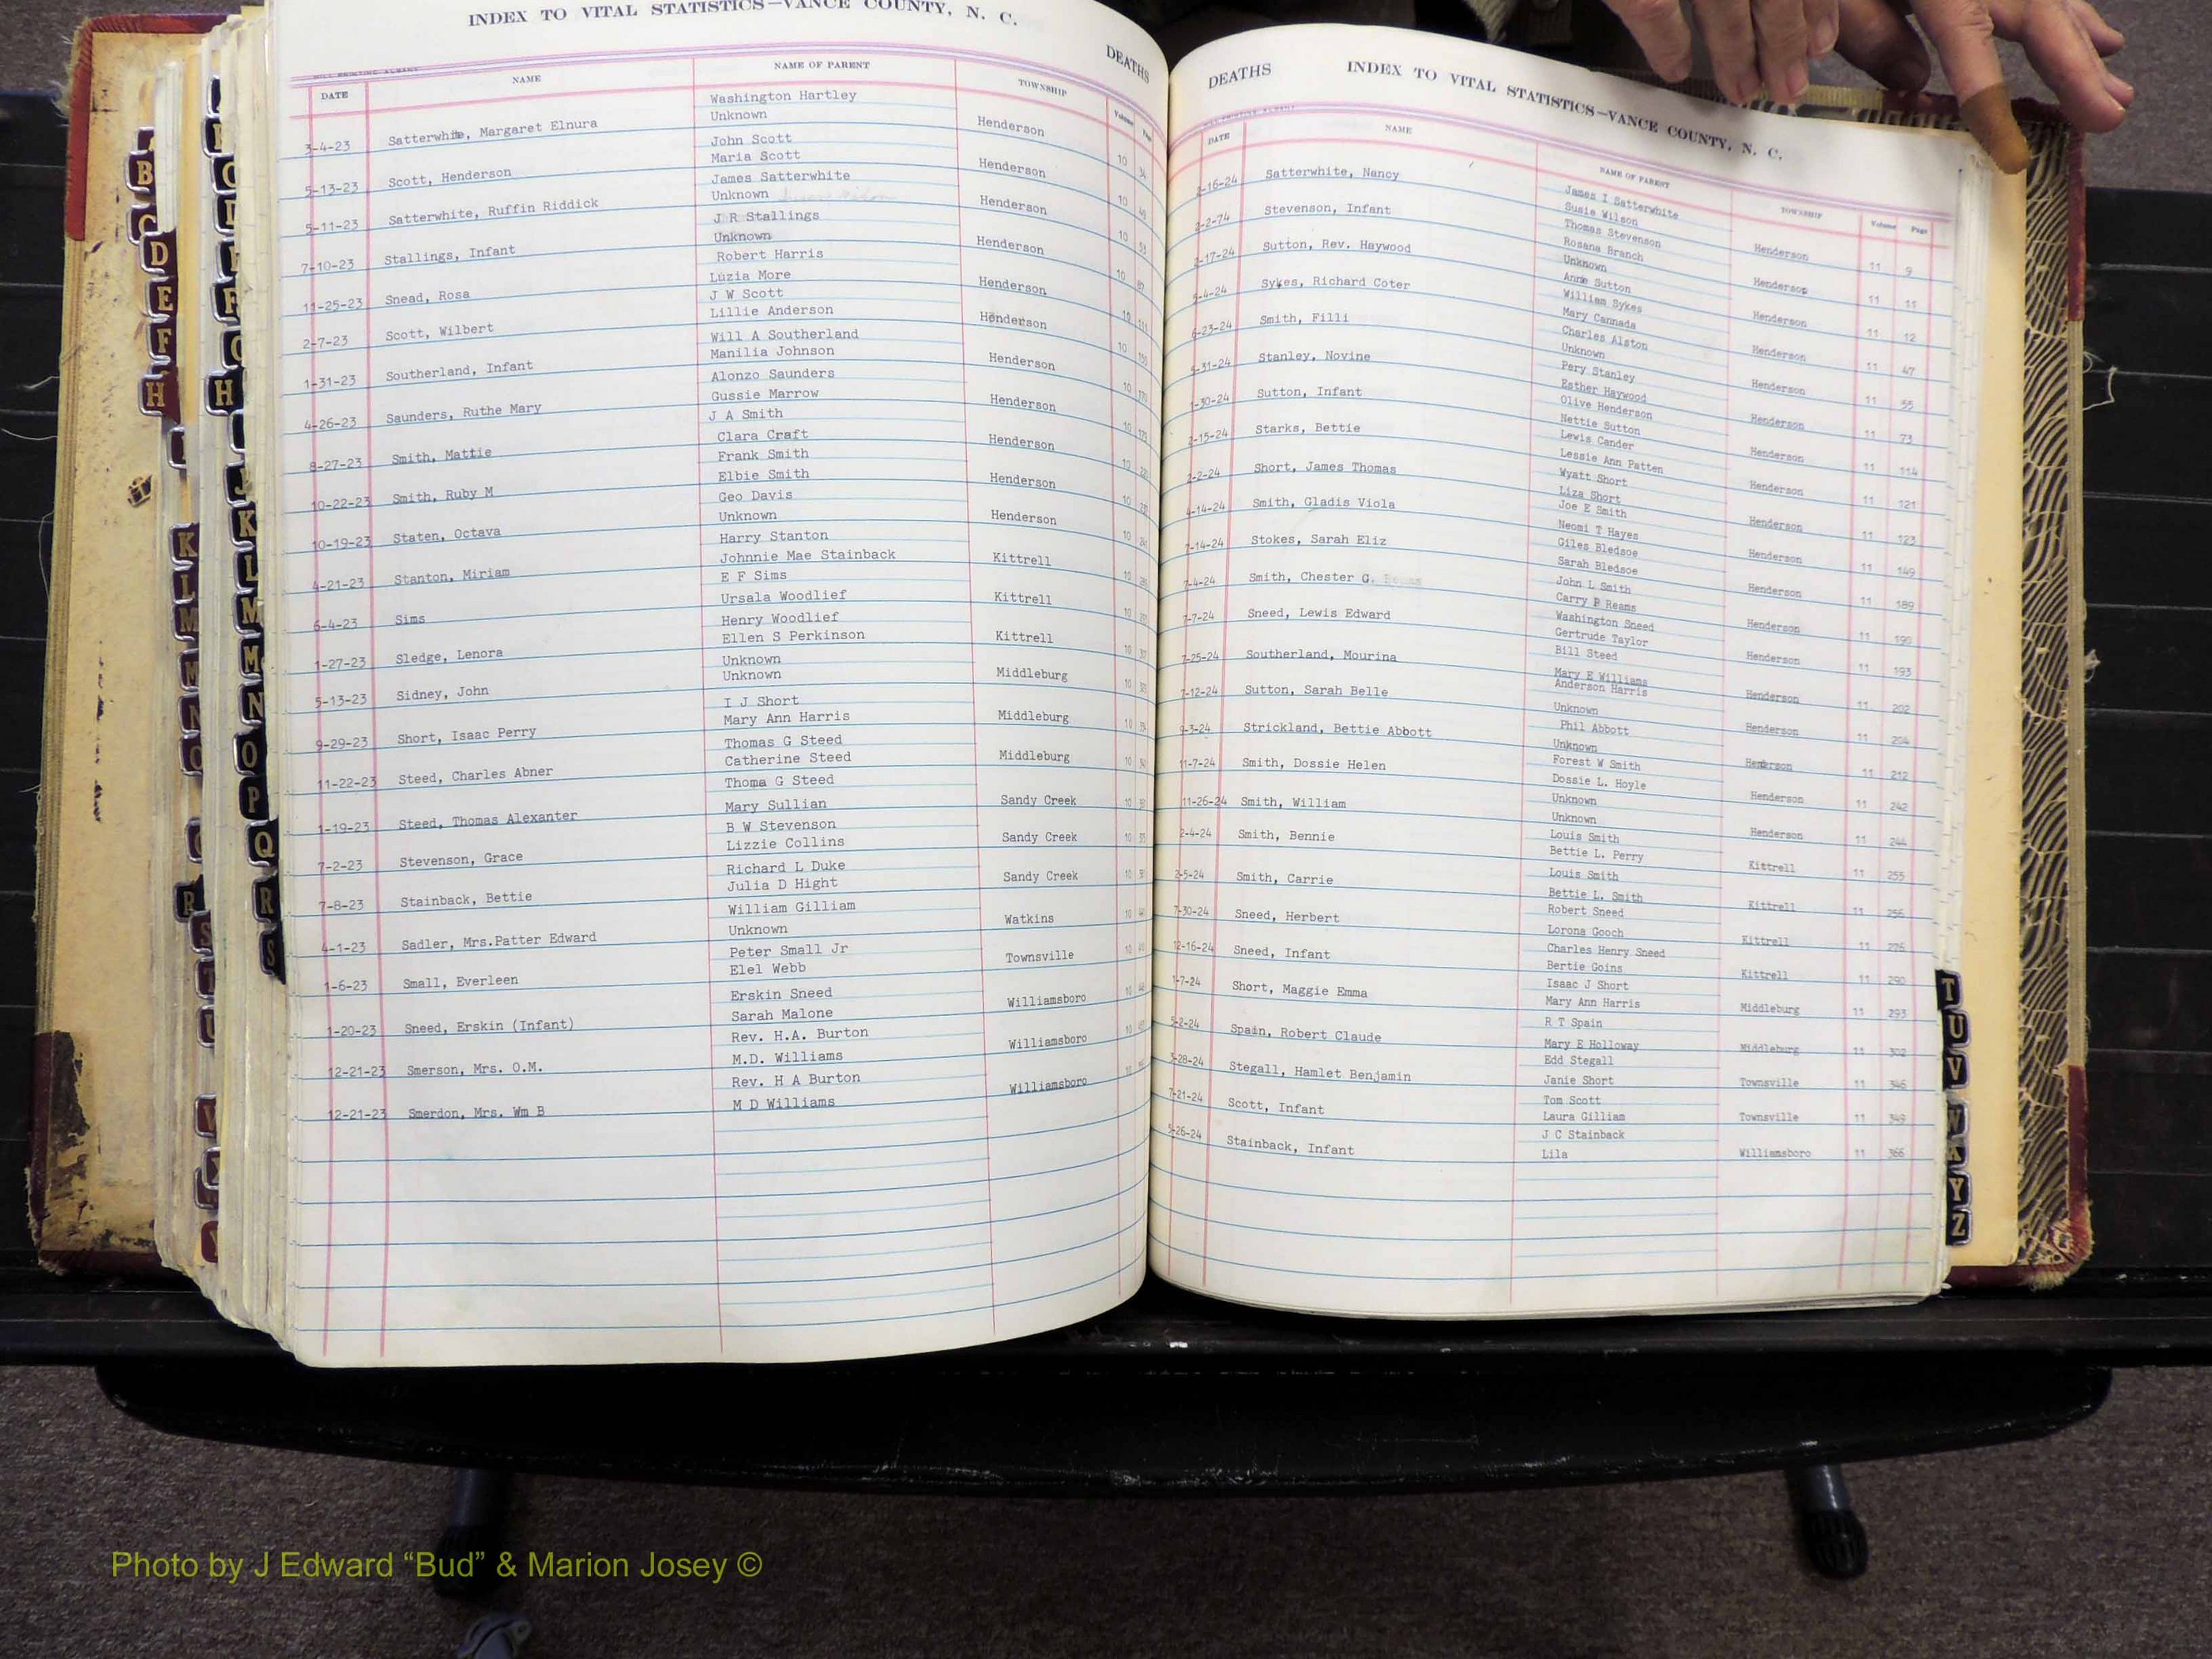 INDEX TO VITAL STATISTICS—VANCE COUNTY, N. C.
DEATHS
DATE NAME NAME OF PARENT TOWNSHIP Volume
3-4-23 Satterwhite, Margaret Elnura Washington Hartley Henderson 10
Unknown
5-13-23 Scott, Henderson John Scott Henderson 10
Maria Scott
5-11-23 Satterwhite, Ruffin Riddick James Satterwhite Henderson 10
Unknown
7-10-23 Stallings, Infant J R Stallings Henderson 10
Unknown
11-25-23 Snead, Rosa Robert Harris Henderson 10
Luzia More
2-7-23 Scott, Wilbert J W Scott Henderson 10
Lillie Anderson
1-31-23 Southerland, Infant Will A Southerland Henderson 10
Manilia Johnson
4-26-23 Saunders, Ruthe Mary Alonzo Saunders Henderson 10
Gussie Marrow
8-27-23 Smith, Mattie J A Smith Henderson 10
Clara Craft
10-22-23 Smith, Ruby M Frank Smith Henderson 10
Elbie Smith
10-19-23 Staten, Octava Geo Davis Henderson 10
Unknown
4-21-23 Stanton, Miriam Harry Stanton Kittrell 10
Johnnie Mae Stainback
6-4-23 Sims E F Sims Kittrell 10
Ursala Woodlief
1-27-23 Sledge, Lenora Henry Woodlief Kittrell 10
Ellen S Perkinson
5-13-23 Sidney, John Unknown Middleburg 10
Unknown
9-29-23 Short, Isaac Perry I J Short Middleburg 10
Mary Ann Harris
11-22-23 Steed, Charles Abner Thomas G Steed Middleburg 10
Catherine Steed
1-19-23 Steed, Thomas Alexanter Thoma G Steed Sandy Creek 10
Mary Sullian
7-2-23 Stevenson, Grace B W Stevenson Sandy Creek 10
Lizzie Collins
7-8-23 Stainback, Bettie Richard L Duke Sandy Creek 10
Julia D Hight
4-1-23 Sadler, Mrs.Patter Edward William Gilliam Watkins 10
Unknown
1-6-23 Small, Everleen Peter Small Jr Townsville 10
Elel Webb
1-20-23 Sneed, Erskin (Infant) Erskin Sneed Williamsboro 10
Sarah Malone
12-21-23 Smerson, Mrs. O.M. Rev. H.A. Burton Williamsboro 10
M.D. Williams
12-21-23 Smerdon, Mrs. Wm B Rev. H A Burton Williamsboro
M D Williams
DEATHS INDEX TO VITAL STATISTICS—VANCE COUNTY, N. C.
DATE NAME NAME OF PARENT TOWNSHIP Volume Page
2-16-24 Satterwhite, Nancy James I Satterwhite Henderson 11 9
Susie Wilson
2-2-74 Stevenson, Infant Thomas Stevenson Henderson 11 11
Rosana Branch
2-17-24 Sutton, Rev. Haywood Unknown Henderson 11 12
Annie Sutton
5-4-24 Sykes, Richard Coter William Sykes Henderson 11 47
Mary Cannada
6-23-24 Smith, Filli Charles Alston Henderson 11 55
Unknown
5-31-24 Stanley, Novine Pery Stanley Henderson 11 73
Esther Haywood
1-30-24 Sutton, Infant Olive Henderson Henderson 11 114
Nettie Sutton
2-15-24 Starks, Bettie Lewis Cander Henderson 11 121
Lessie Ann Patten
2-2-24 Short, James Thomas Wyatt Short Henderson 11 123
Liza Short
4-14-24 Smith, Gladis Viola Joe E Smith Henderson 11 149
Neomi T Hayes
7-14-24 Stokes, Sarah Eliz Giles Bledsoe Henderson 11 189
Sarah Bledsoe
7-4-24 Smith, Chester G. John L Smith Henderson 11
Carry P Reams
7-7-24 Sneed, Lewis Edward Washington Sneed Henderson 11 193
Gertrude Taylor
7-25-24 Southerland, Mourina Bill Steed Henderson 11 202
Mary E Williams
7-12-24 Sutton, Sarah Belle Anderson Harris Henderson 11 204
Unknown
9-3-24 Strickland, Bettie Abbott Phil Abbott Henderson 11 212
Unknown
11-7-24 Smith, Dossie Helen Forest W Smith Henderson 11 242
Dossie L. Hoyle
11-26-24 Smith, William Unknown Henderson 11 244
Unknown
2-4-24 Smith, Bennie Louis Smith Kittrell 11 255
Bettie L. Perry
2-5-24 Smith, Carrie Louis Smith Kittrell 11 256
Bettie L. Smith
7-30-24 Sneed, Herbert Robert Sneed Kittrell 11 276
Lorona Gooch
12-16-24 Sneed, Infant Charles Henry Sneed Kittrell 11 290
Bertie Goins
1-7-24 Short, Maggie Emma Isaac J Short Middleburg 11 293
Mary Ann Harris
5-2-24 Spain, Robert Claude R T Spain Middleburg 11 302
Mary E Holloway
3-28-24 Stegall, Hamlet Benjamin Edd Stegall Townsville 11 346
Janie Short
7-21-24 Scott, Infant Tom Scott Townsville 11 349
Laura Gilliam
5-26-24 Stainback, Infant J C Stainback Williamsboro 11 366
Lila
B
C
D
E
F
H
K
L
M
N
O
P
Q
R
S
T
U
V
Y
Z
Photo by J Edward “Bud” & Marion Josey ©